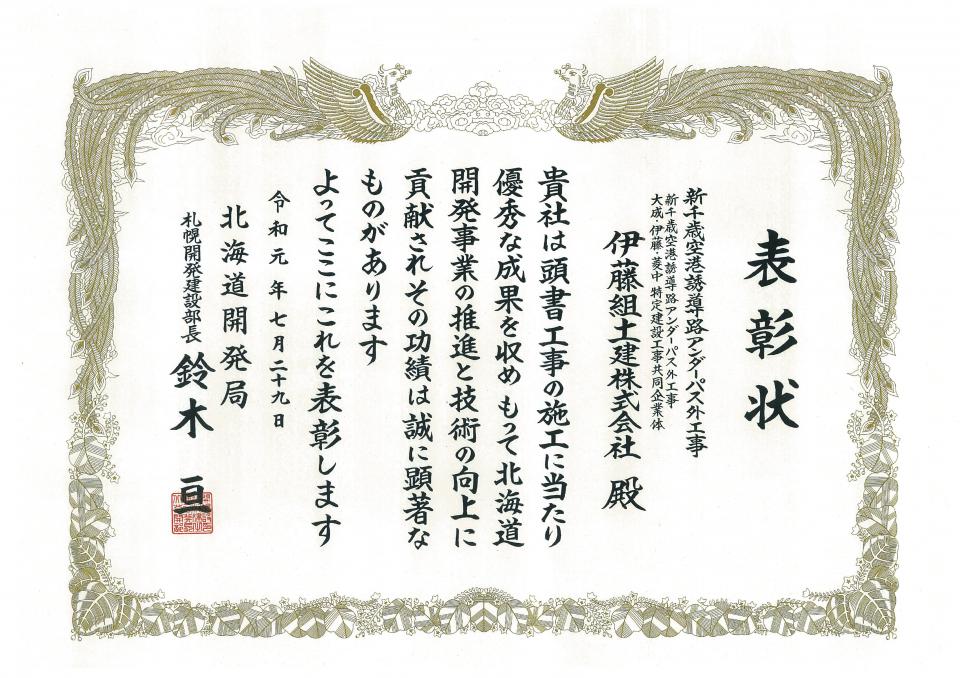 表彰状
新千歳空港誘導路アンダーパス外工事
新千歳空港誘導路アンダーパス外工事
大成・伊藤・菱中特定建設工事共同企業体
伊藤組土建株式会社 殿
貴社は頭書工事の施工に当たり
優秀な成果を収め もって北海道
開発事業の推進と技術の向上に
貢献されその功績は誠に顕著な
ものがあります
よってここにこれを表彰します
令和元年七月二十九日
北海道開発局
札幌開発建設部長 鈴木 亘